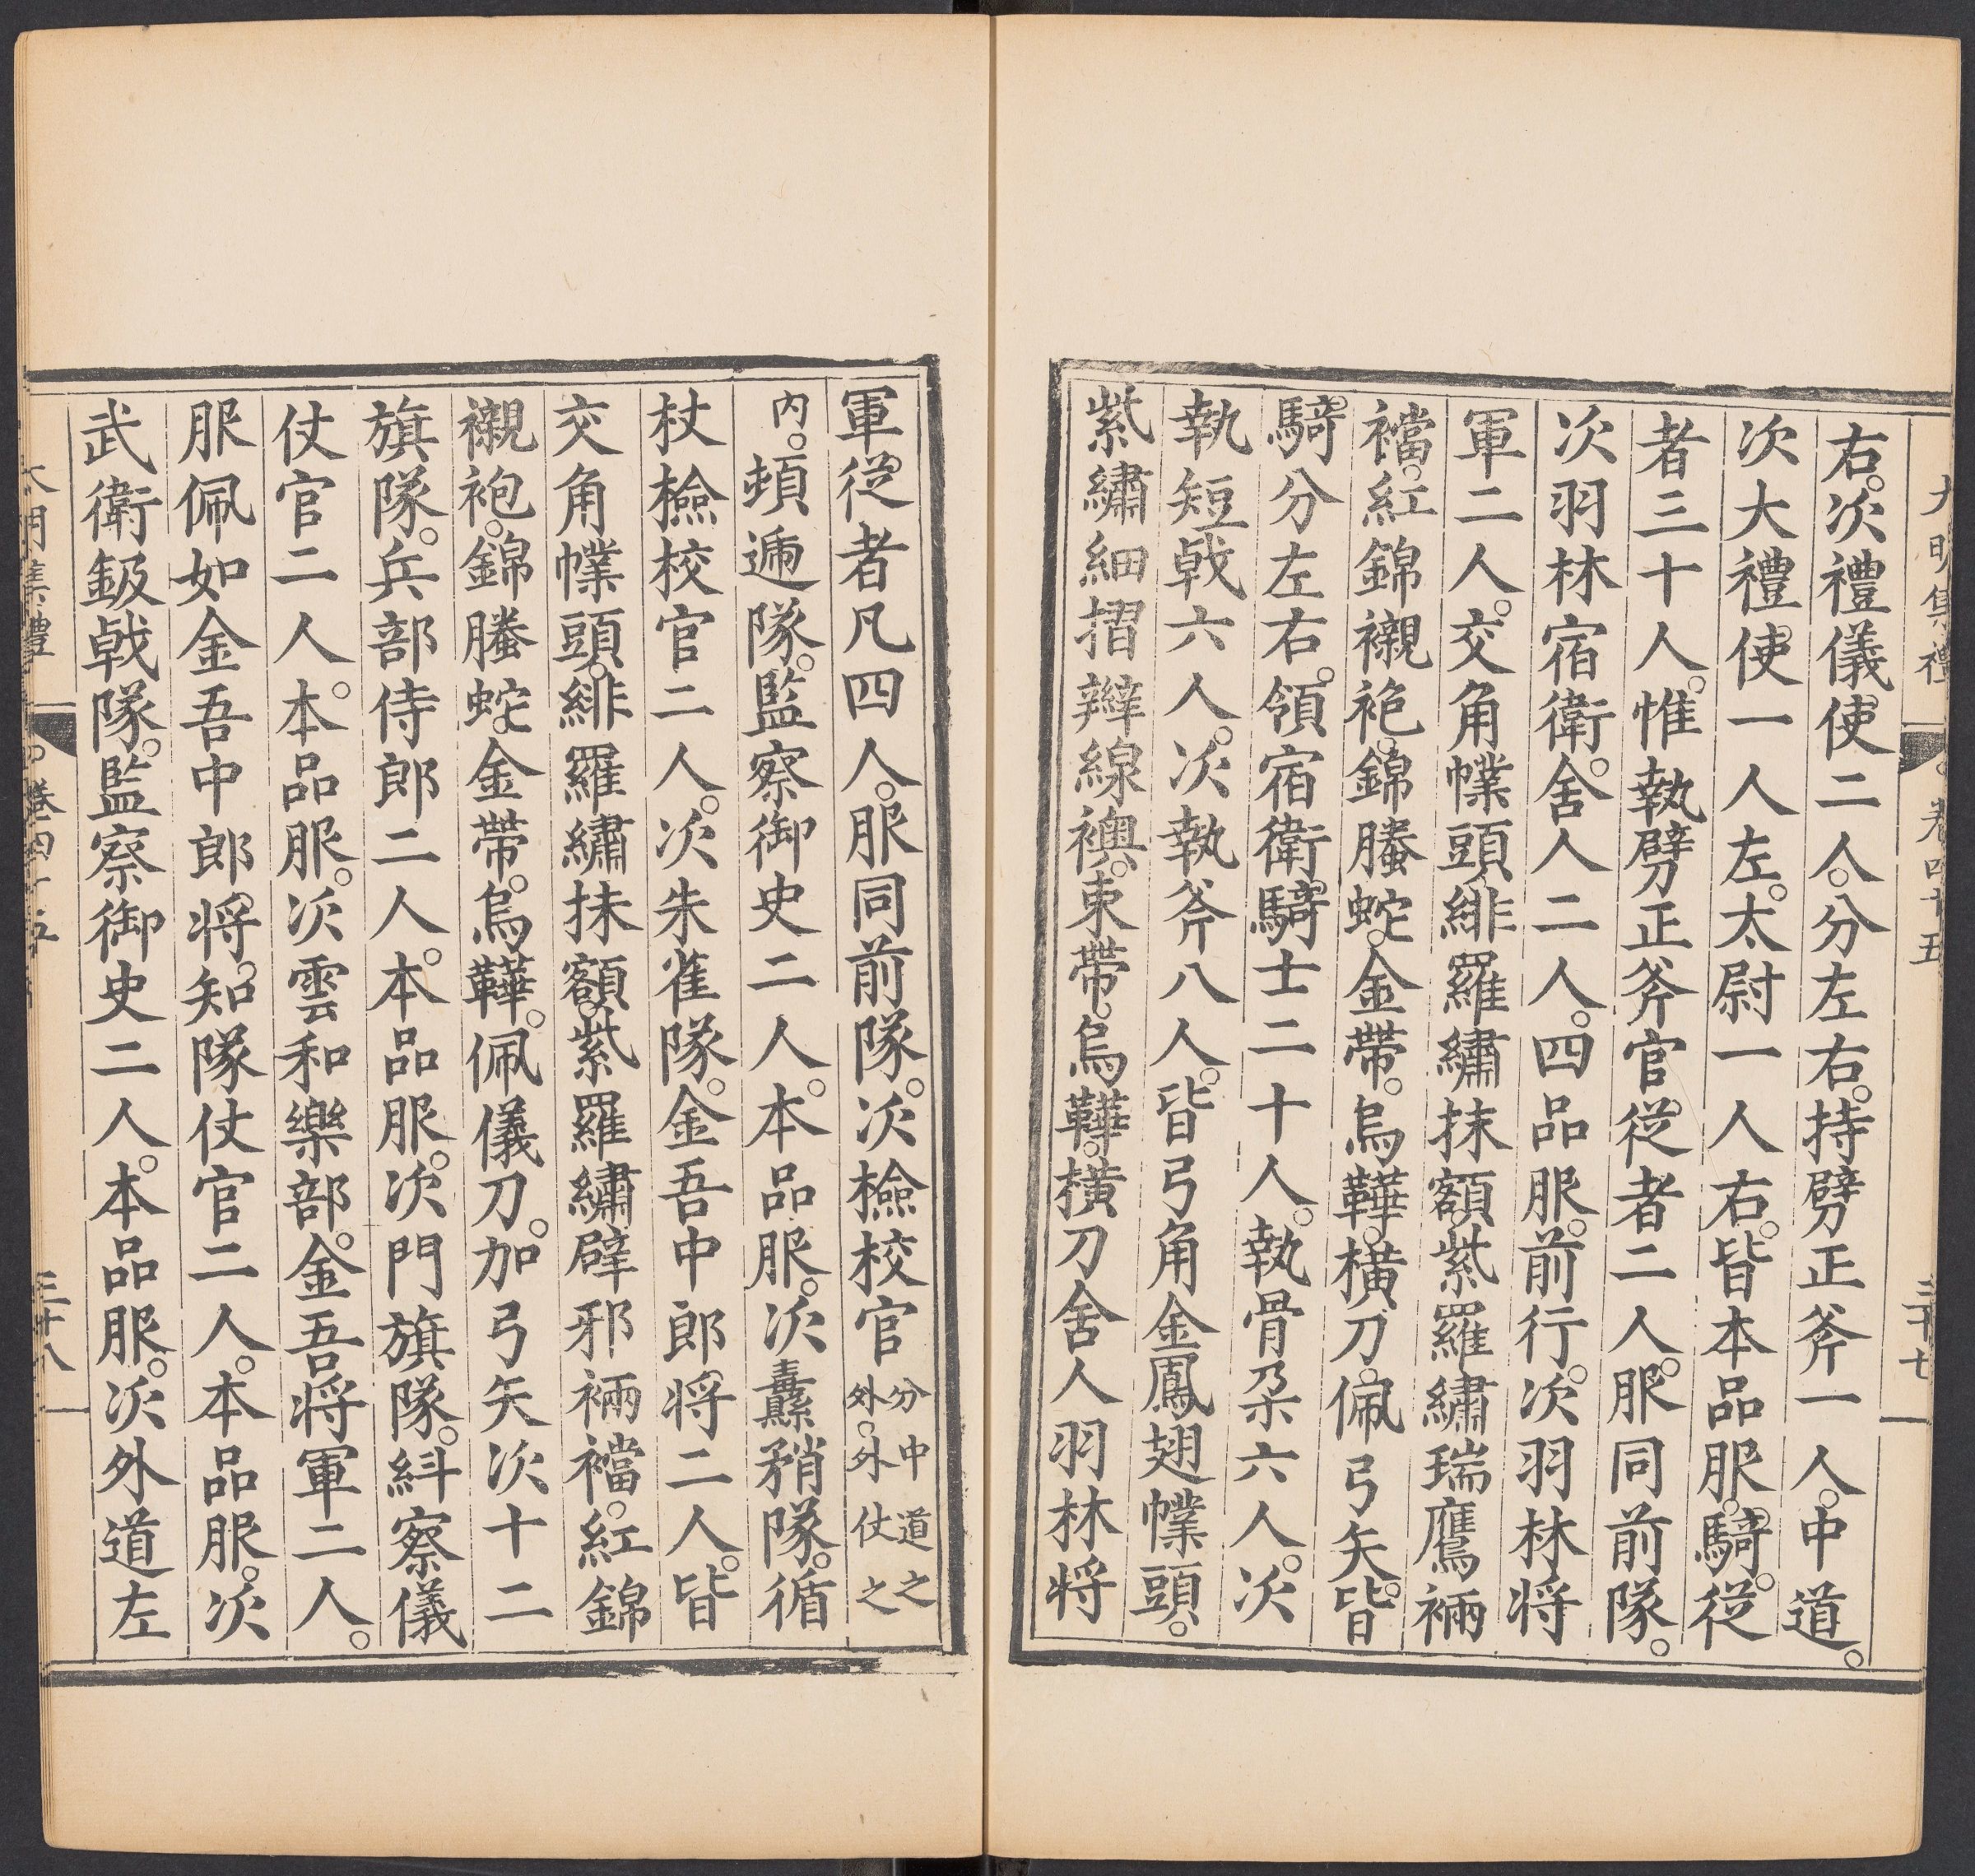 大明集禮 卷四十五 三十七
右。次禮儀使二人。分左右。持劈正斧一人。中道。
次大禮使一人左。太尉一人右。皆本品服。騎。從
者三十人。惟執劈正斧官從者二人。服同前隊。
次羽林宿衛。舍人二人。四品服。前行。次羽林將
軍二人。交角幞頭。緋羅繡抹額。紫羅繡瑞鷹裲
襠。紅錦襯袍。錦螣蛇。金帶。烏鞾。橫刀。佩弓矢。皆
騎。分左右。領宿衛騎士二十人。執骨朵六人。次
執短戟六人。次執斧八人。皆弓角金鳳翅幞頭。
紫繡細摺辮線襖。束帶。烏鞾。橫刀舍人羽林將
軍。從者凡四人。服同前隊。次檢校官分中道之外。外仗之
內。頓遞隊。監察御史二人。本品服。次纛矟隊。循
杖檢校官二人。次朱雀隊。金吾中郎將二人。皆
交角幞頭。緋羅繡抹額。紫羅繡辟邪裲襠。紅錦
襯袍。錦螣蛇。金帶。烏鞾。佩儀刀。加弓矢次十二
旗隊。兵部侍郎二人。本品服。次門旗隊。糾察儀
仗官二人。本品服。次雲和樂部。金吾將軍二人。
服佩如金吾中郎將。知隊仗官二人。本品服。次
武衛鈒戟隊。監察御史二人。本品服。次外道左
大明集禮 卷四十五 三十八